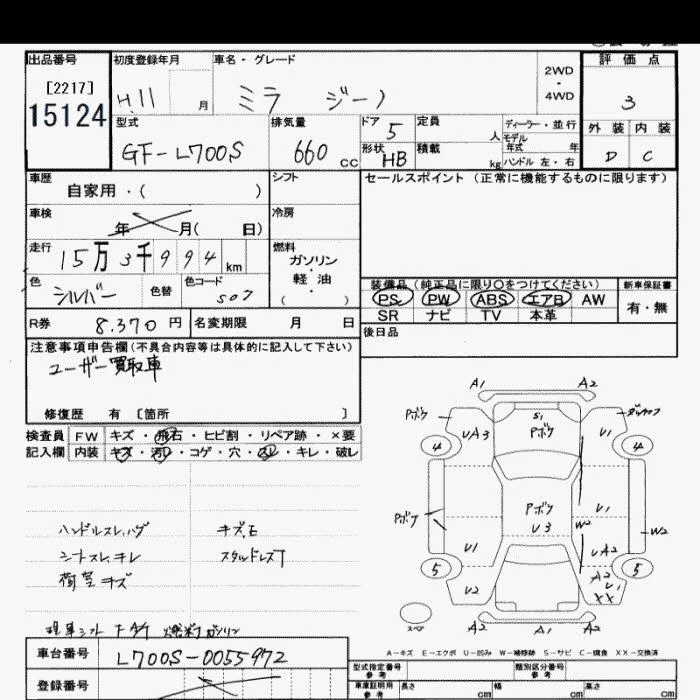 出品番号 初度登録年月 車名・グレード 評価点
[2217] 2WD
15124 H.11 月 ミラ ジーノ ・ 3
4WD
型式 排気量 ドア 5 定員 人 ディーラー・並行 外装 内装
モデル
GF-L700S 660 cc 形状 HB 積載 kg 年式 年 D C
ハンドル 左・右
車歴 自家用・( ) シフト セールスポイント (正常に機能するものに限ります)
車検 年 月( 日) 冷房
走行 15万3千994 km 燃料
ガソリン
色 シルバー 色替 色コード S07 ・
軽油
( )
装備品 (純正品に限り○をつけてください) 新車保証書
PS PW ABS エアB AW 有・無
SR ナビ TV 本革
R券 8.370 円 名変期限 月 日 後日品
注意事項申告欄(不具合内容等は具体的に記入して下さい)
ユーザー買取車
修復歴 有 〔箇所 〕
検査員 FW キズ・飛石・ヒビ割・リペア跡・×要
記入欄 内装 キズ・汚レ・コゲ・穴・スレ・キレ・破レ
A1 A2
Pボケ S1
UA3 Pボケ U1
4 4
Pボケ Pボケ U1
U3 W2 W2
U1 UA2
5 A2 5
U2 U1
XX
A2 A1 A2
ハンドルスレ, ハゲ キズ, E
シートスレ, キレ スタッドレスT
荷室キズ
現車シフト FAT 燃料ガソリン
A-キズ E-エクボ U-凹み W-補修跡 S-サビ C-腐食 XX-交換済
車台番号 L700S-0055972
型式指定番号 類別区分番号
参考 参考
登録番号 車庫証明用 長さ cm 幅 cm 高さ cm
参考